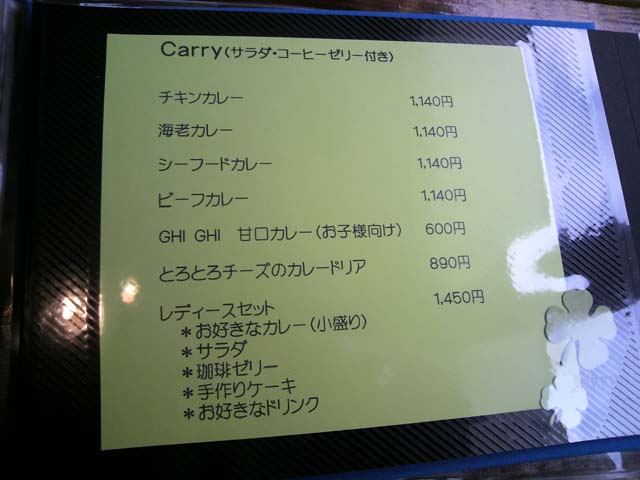 Carry(サラダ・コーヒーゼリー付き)
チキンカレー 1,140円
海老カレー 1,140円
シーフードカレー 1,140円
ビーフカレー 1,140円
GHI GHI 甘口カレー(お子様向け) 600円
とろとろチーズのカレードリア 890円
レディースセット 1,450円
＊お好きなカレー(小盛り)
＊サラダ
＊珈琲ゼリー
＊手作りケーキ
＊お好きなドリンク